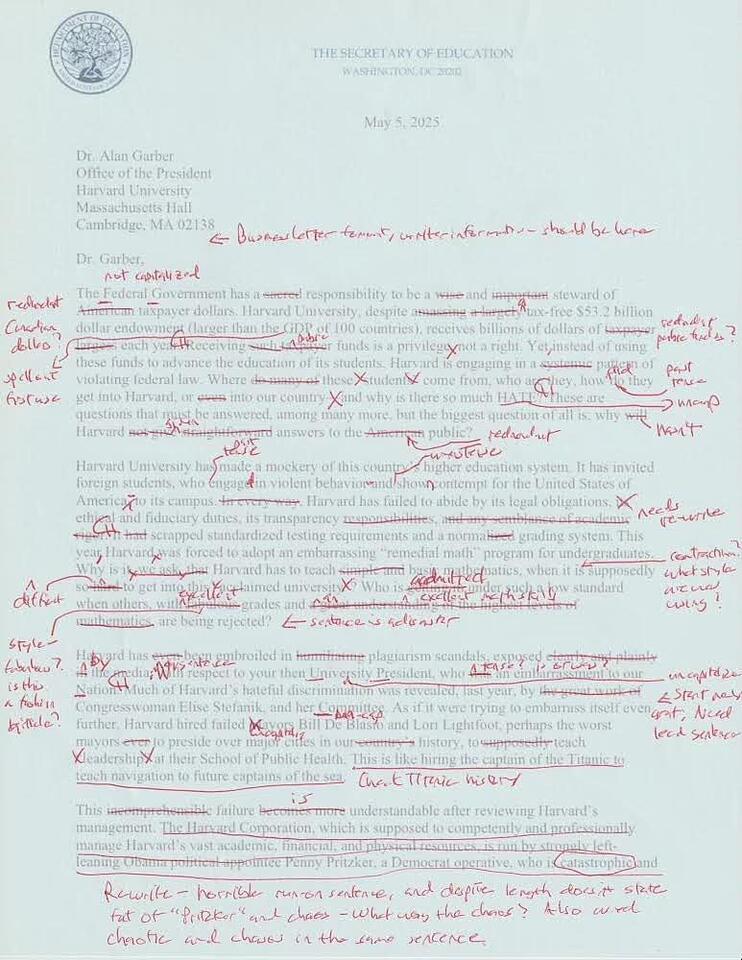 DEPARTMENT OF EDUCATION
UNITED STATES OF AMERICA
THE SECRETARY OF EDUCATION
WASHINGTON, DC 20202
May 5, 2025
Dr. Alan Garber
Office of the President
Harvard University
Massachusetts Hall
Cambridge, MA 02138
← Business letter format, writer information – should be here
Dr. Garber,
not capitalized
The Federal Government has a sacred responsibility to be a wise and important steward of
American taxpayer dollars. Harvard University, despite amassing a largely tax-free $53.2 billion
dollar endowment (larger than the GDP of 100 countries), receives billions of dollars of taxpayer
largess each year. Receiving such taxpayer funds is a privilege, not a right. Yet, instead of using
these funds to advance the education of its students, Harvard is engaging in a systemic pattern of
violating federal law. Where do many of these "students" come from, who are they, how do they
get into Harvard, or even into our country – and why is there so much HATE? These are
questions that must be answered, among many more, but the biggest question of all is, why will
Harvard not give straightforward answers to the American public?
redundant
Canadian
dollars?
spell out
first use
public
redundant
public funds?
past
tense
did
uncap
won't
given
redundant
Harvard University has made a mockery of this country's higher education system. It has invited
foreign students, who engage in violent behavior and show contempt for the United States of
America, to its campus. In every way, Harvard has failed to abide by its legal obligations, its
ethical and fiduciary duties, its transparency responsibilities, and any semblance of academic
rigor. It had scrapped standardized testing requirements and a normalized grading system. This
year, Harvard was forced to adopt an embarrassing "remedial math" program for undergraduates.
Why is it, we ask, that Harvard has to teach simple and basic mathematics, when it is supposedly
so hard to get into this "acclaimed university"? Who is getting in under such a low standard
when others, with fabulous grades and a great understanding of the highest levels of
mathematics, are being rejected?
tense
needs
re-write
contraction?
what style
are we
using?
difficult
admitted
excellent
excellent math skills
← sentence is a disaster
style –
fabulous?
is this
a fashion
article?
Harvard has even been embroiled in humiliating plagiarism scandals, exposed clearly and plainly
in the media, with respect to your then University President, who is an embarrassment to our
Nation. Much of Harvard's hateful discrimination was revealed, last year, by the great work of
Congresswoman Elise Stefanik, and her Committee. As if it were trying to embarrass itself even
further, Harvard hired failed Mayors Bill De Blasio and Lori Lightfoot, perhaps the worst
mayors ever to preside over major cities in our country's history, to supposedly teach
"leadership" at their School of Public Health. This is like hiring the captain of the Titanic to
teach navigation to future captains of the sea.
by
tense?
uncapitalize
← Start new
graf, Need
lead sentence
Check Titanic history
is
This incomprehensible failure becomes more understandable after reviewing Harvard's
management. The Harvard Corporation, which is supposed to competently and professionally
manage Harvard's vast academic, financial, and physical resources, is run by strongly left-
leaning Obama political appointee Penny Pritzker, a Democrat operative, who is catastrophic and
Rewrite – horrible run-on sentence, and despite length doesn't state
of "Pritzker" and chaos – What was the chaos? Also
chaotic and chaos in the same sentence.